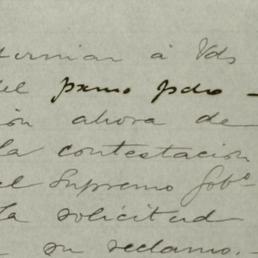 terniar á Vds
del pxmo pdo -
ión ahora de
la contestación
el Supremo Gobº
la solicitud
su reclamo. -